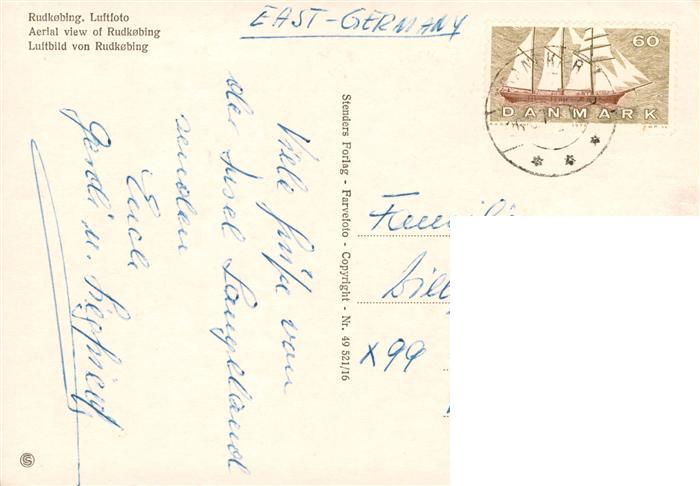 Rudkøbing. Luftfoto
Aerial view of Rudkøbing
Luftbild von Rudkøbing
EAST-GERMANY
60
DANMARK
Viele Grüße von
der Insel Langeland
senden
Euch
Gerdi u. Siegfried
Stenders Forlag - Farvefoto - Copyright - Nr. 49 521/16
Famili
x 99